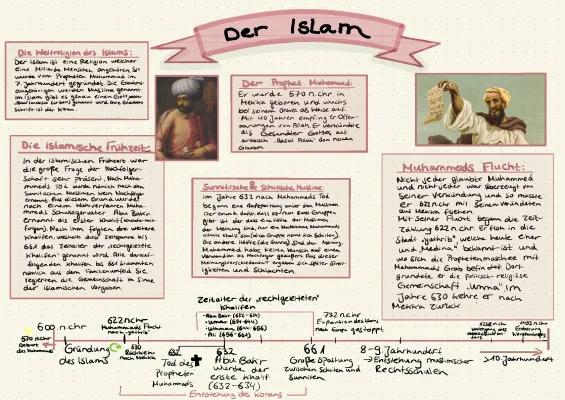 Der Islam
Die Weltreligion des Islams:
Der Islam ist eine Religion welcher
eine Milliarde Menschen angehören. Sie
wurde vom Propheten Muhammad im
7. Jahrhundert gegründet. Die
angehörigen werden Muslime genannt.
Im Islam gibt es genau einen Gott
Schrift ist der Koran.
Der Prophet Muhammed:
Er wurde 570 n.chr in
Mekka geboren und wuchs
bei seinem Onkel als Waise auf.
Mit 40 Jahren empfing er Offen-
barungen von Allah. Er verkündete
als Gesandter Gottes, auf
arabisch „Rasul Allah" den neuen
Glauben
Die islamische Frühzeit:
In der islamischen Frühzeit war
die große Frage der Nachfolger-
schaft sehr präsent. Nach Muha-
mmeds Tod wurde nämlich nach den
Sunnitischen Muslimen kein Nachfolger
ernannt. Aus diesem Grund wurde
nach einem Wahlverfahren Muha-
mmeds Schwiegervater Abu Bakr
ernannt als erster Khalif
Nach ihm folgten drei weitere
Khalifen, weshalb dies Zeitspanne bis
661 das Zeitalter der „rechtgeleitete
Khalifen" genannt wird. Alle darauf-
folgenden Khalifen bis 661 stammten
nämlich aus dem Familienumfeld. Sie
regierten die Gemeinschaft im Sinne
der islamischen Vorgaben
Sunnitische & Schiitische Muslime:
Im Jahre 632 nach Muhammeds Tod
begann eine Aufspaltung unter den Muslimen.
Der Grund dafür war, es nun zwei Gruppen
gibt. Ist der das eine Hälfte der Muslimen,
der Meinung sind, nur ein Nachkomme Muhammeds
könnte Khalif sein (diese Gruppe nennt sich Schiiten).
Die andere Hälfte (die Sunna) sind der Meinung
Muhammed habe keinen Wunsch auf einen
Verwandten als Nachfolger geäußert. Aus dieser
Meinungsverschiedenheit ergeben sich später Strei-
tigkeiten und Schlachten
Muhammeds Flucht:
Nicht jeder glaubte Muhammed
und nicht jeder war überzeugt von
seiner Verkündung und so musste
er 622 n.chr mit seinen Verwandten
aus Mekka fliehen.
Mit seiner Flucht begann die Zeit-
zählung 622 n.chr. Er floh in die
Stadt „Yathrib", welche heute eher
und „Medina" bekannt ist und
wo sich die Prophetenmoschee mit
Muhammeds Grab befindet. Dort
gründete er die politisch-religiöse
Gemeinschaft „Umma". Im
Jahre 630 kehre er nach
Mekka zurück
Zeitalter der „rechtgeleiteten"
Khalifen
- Abu Bakr (632-634)
- Umar (634-644)
- Uthmann (644-656)
- Ali (656-661)
600 n.chr
622 n.chr
Muhammads Flucht
nach Yathrib
732 n.chr
Expansion des Islams
nach Europa gestoppt
1258 n.chr
1492 n.chr
570 n.chr
Geburt
des Muhammeds
Gründung
des Islams
630
Rückkehr
nach Mekka
632
Tod des
Propheten
Muhammads
632
Abu Bakr
wurde der
erste Khalif
(632-634)
661
Große Spaltung
zwischen Schiiten und
Sunniten
8-9. Jahrhundert
→ Entstehung muslimischer
Rechtsschulen
>10. Jahrhundert
Entstehung des Korans